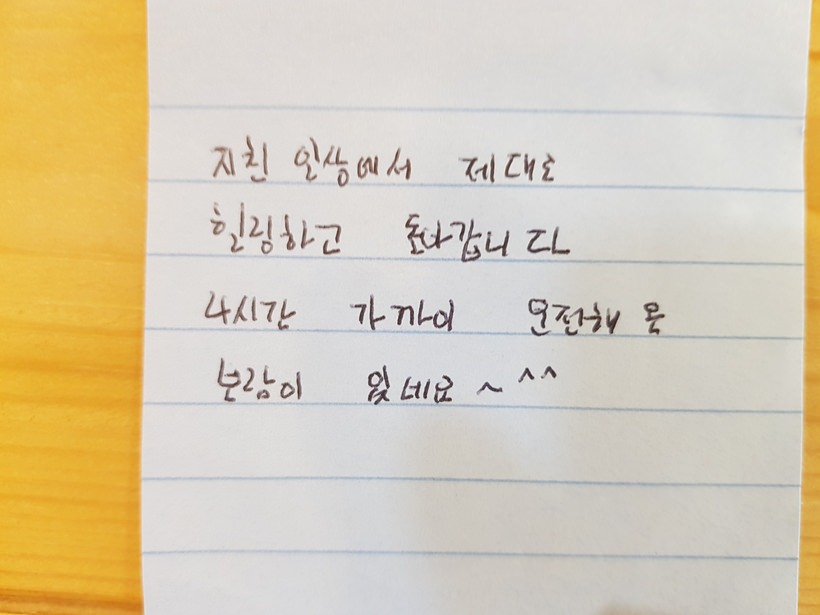 지친 일상에서 제대로
힐링하고 돌아갑니다
4시간 가까이 운전해 온
보람이 있네요~^^